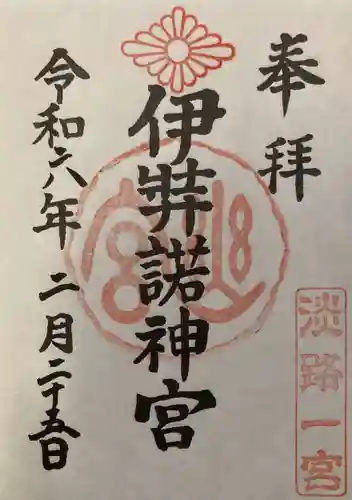 奉拝
伊弉諾神宮
令和六年二月二十五日
淡路一宮